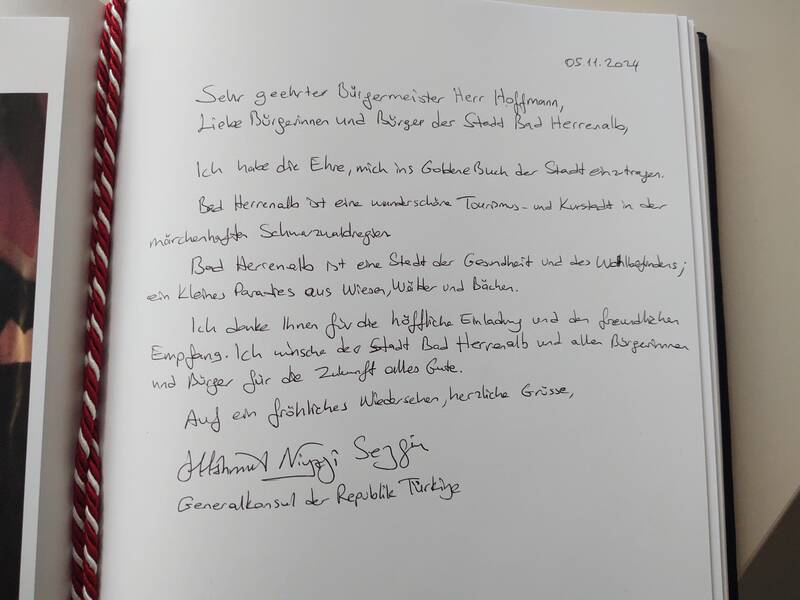 05.11.2024
Sehr geehrter Bürgermeister Herr Hoffmann,
Liebe Bürgerinnen und Bürger der Stadt Bad Herrenalb,
Ich habe die Ehre, mich ins Goldene Buch der Stadt einzutragen.
Bad Herrenalb ist eine wunderschöne Tourismus- und Kurstadt in der
märchenhaften Schwarzwaldregion
Bad Herrenalb ist eine Stadt der Gesundheit und des Wohlbefindens;
ein kleines Paradies aus Wiesen, Wälder und Bächen.
Ich danke Ihnen für die höffliche Einladung und den freundlichen
Empfang. Ich wünsche der Stadt Bad Herrenalb und allen Bürgerinnen
und Bürger für die Zukunft alles Gute.
Auf ein fröhliches Wiedersehen, herzliche Grüsse,
Mahmut Niyazi Sezgin
Generalkonsul der Republik Türkiye